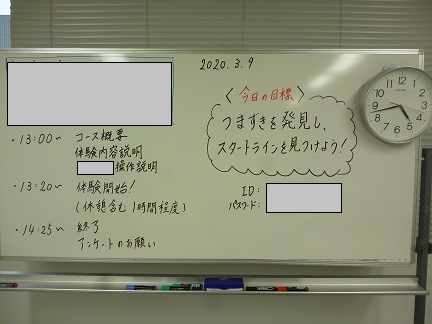 2020.3.9
〈今日の目標〉
つまずきを発見し、
スタートラインを見つけよう!
・13:00～ コース概要
体験内容説明
操作説明
・13:20～ 体験開始!
(休憩含む 1時間程度)
・14:25～ 終了
アンケートのお願い
ID:
パスワード: